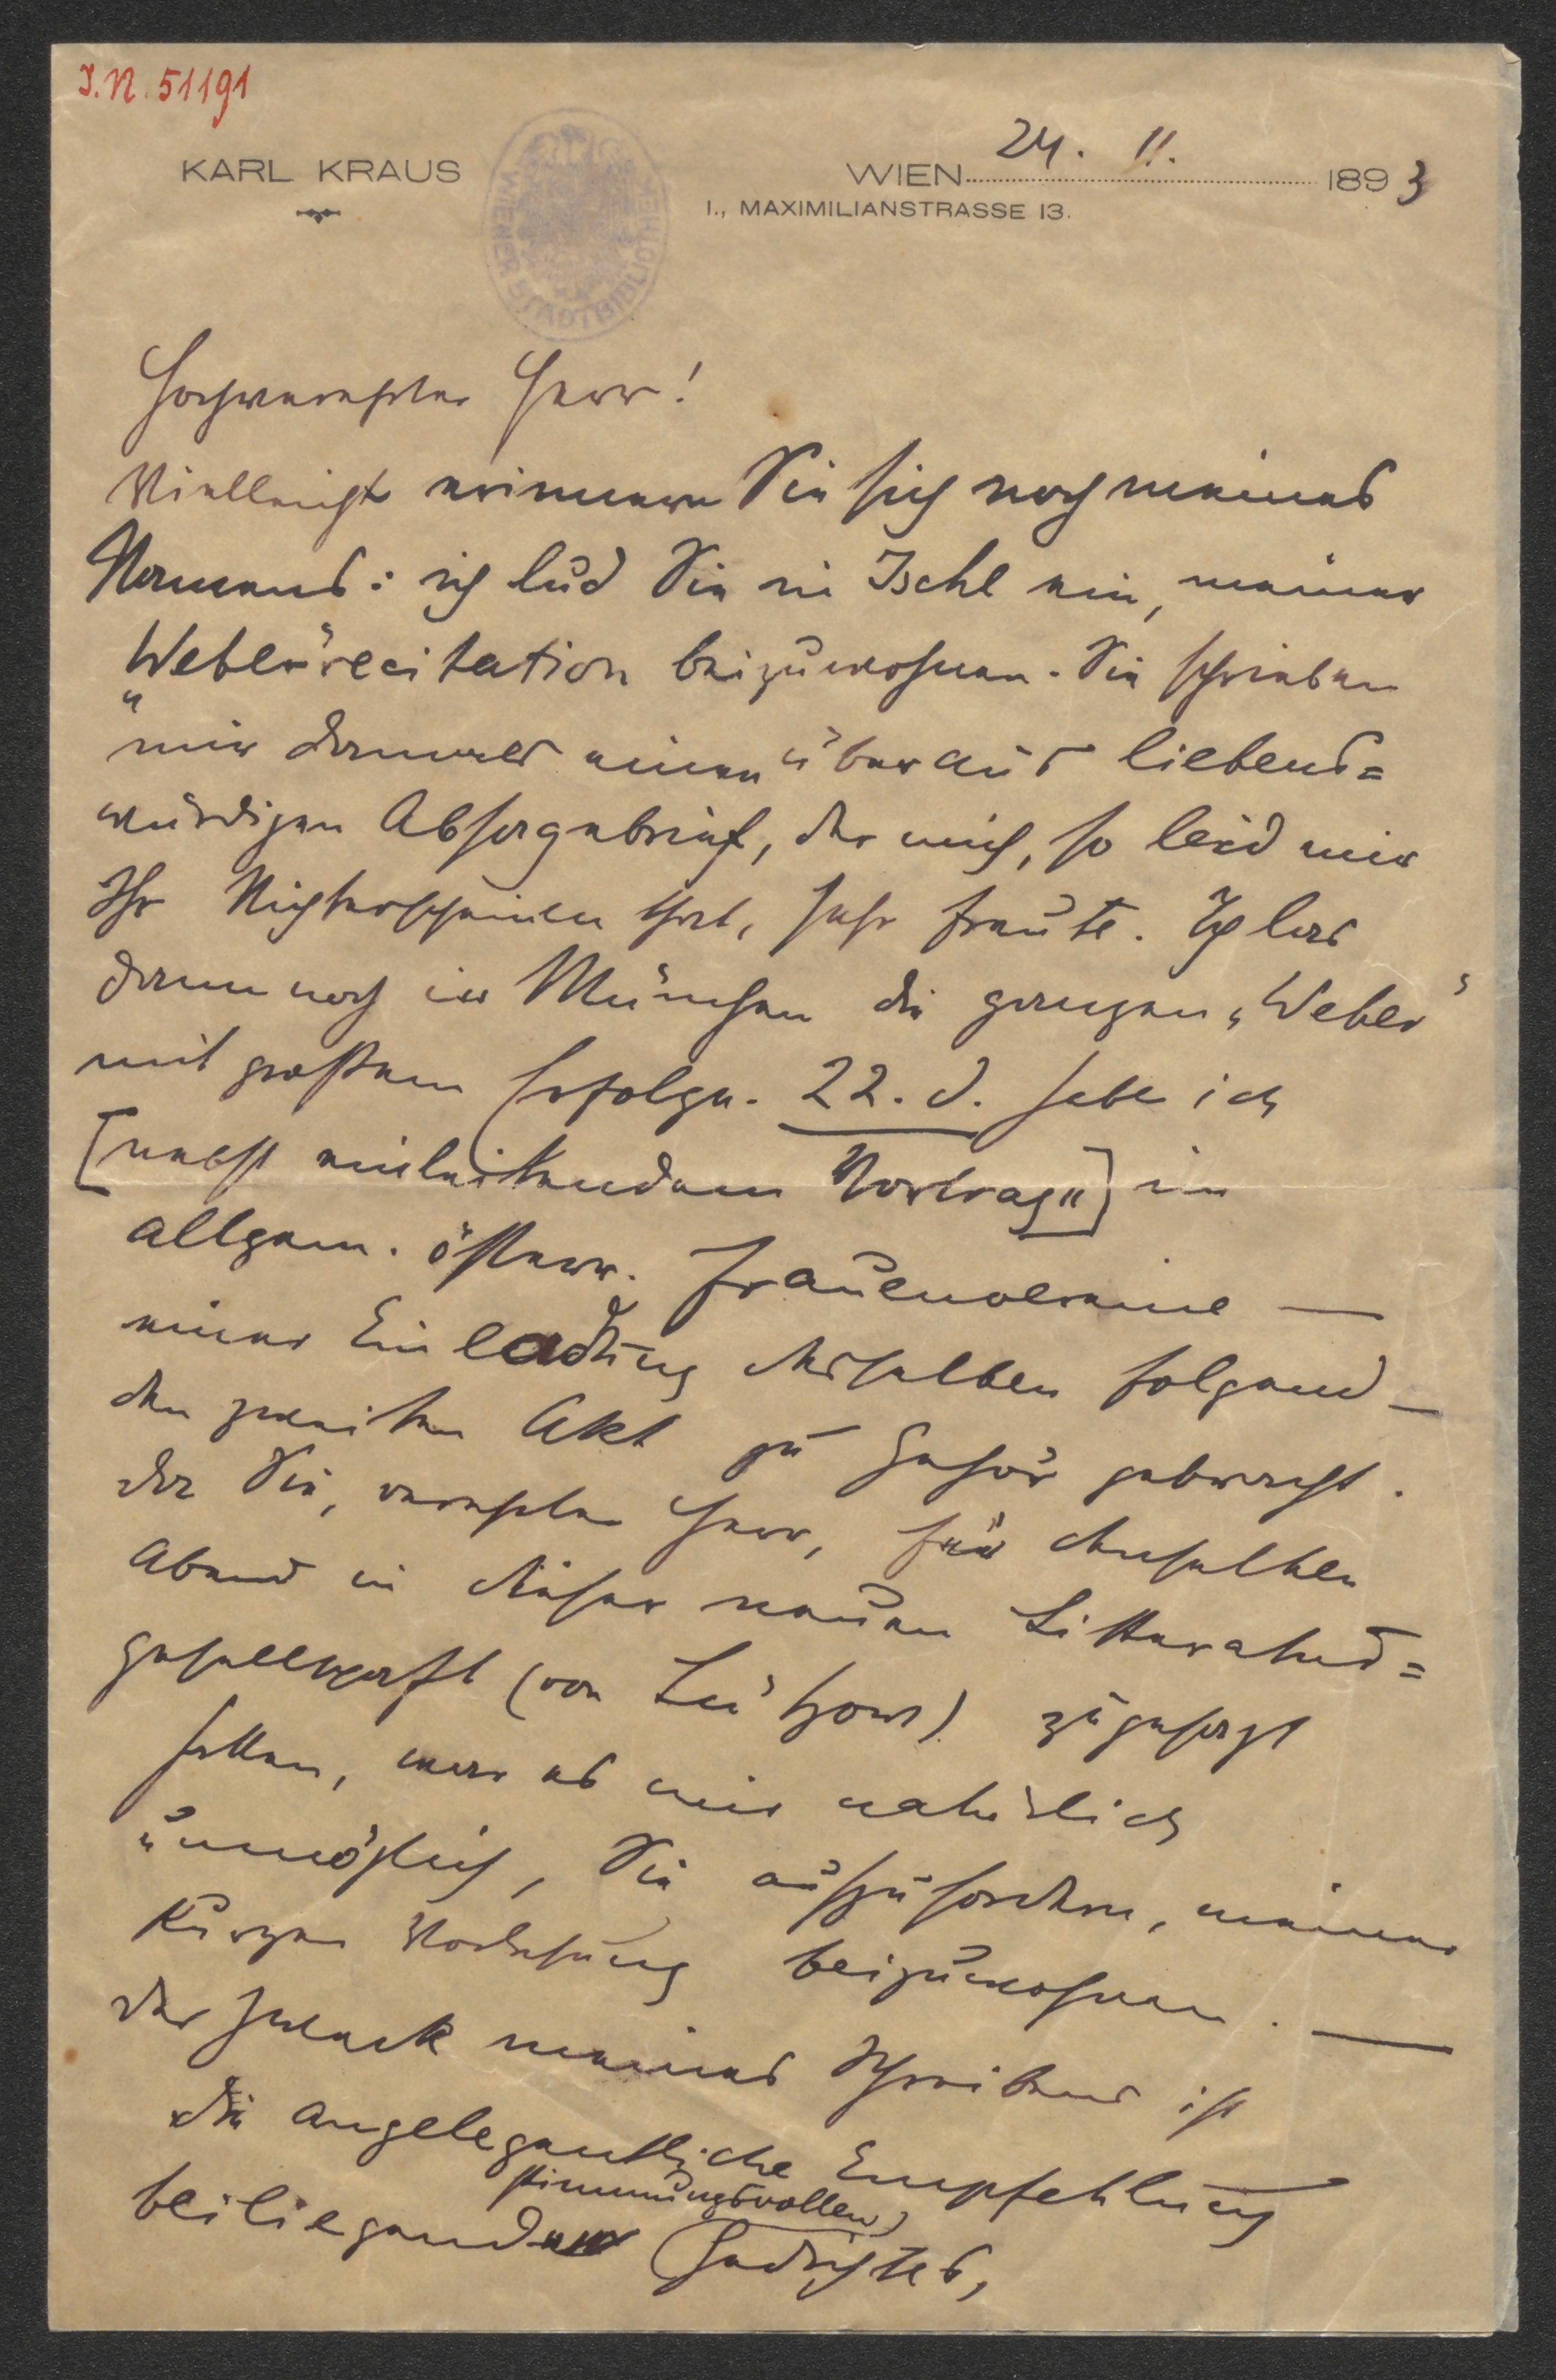 I.N. 51191
KARL KRAUS
WIENER STADTBIBLIOTHEK
WIEN 24. 11. 1893
I., MAXIMILIANSTRASSE 13.
Hochverehrter Herr!
Vielleicht erinnern Sie sich noch meines
Namens: ich lud Sie in Ischl ein, meiner
„Weber“recitation beizuwohnen. Sie schrieben
mir damals einen überaus liebens=
würdigen Absagebrief, der mich, so leid mir
Ihr Nichterscheinen that, sehr freute. Ich las
dann noch in München die ganzen „Weber“
mit großem Erfolge. 22. d. habe ich
[nebst einleitendem Vortrag] im
allgem. österr. Frauenvereine —
einer Einladung desselben folgend —
den zweiten Akt zu Gehör gebracht.
Da Sie, verehrter Herr, für denselben
Abend in dieser neuen Litteratur=
gesellschaft (von Lützow) zugesagt
hatten, war es mir natürlich
unmöglich, Sie aufzufordern, meiner
kurzen Vorlesung beizuwohnen. —
Der Zweck meines Schreibens ist
die angelegentliche Empfehlung
beiliegenden stimmungsvollen Gedichtes,